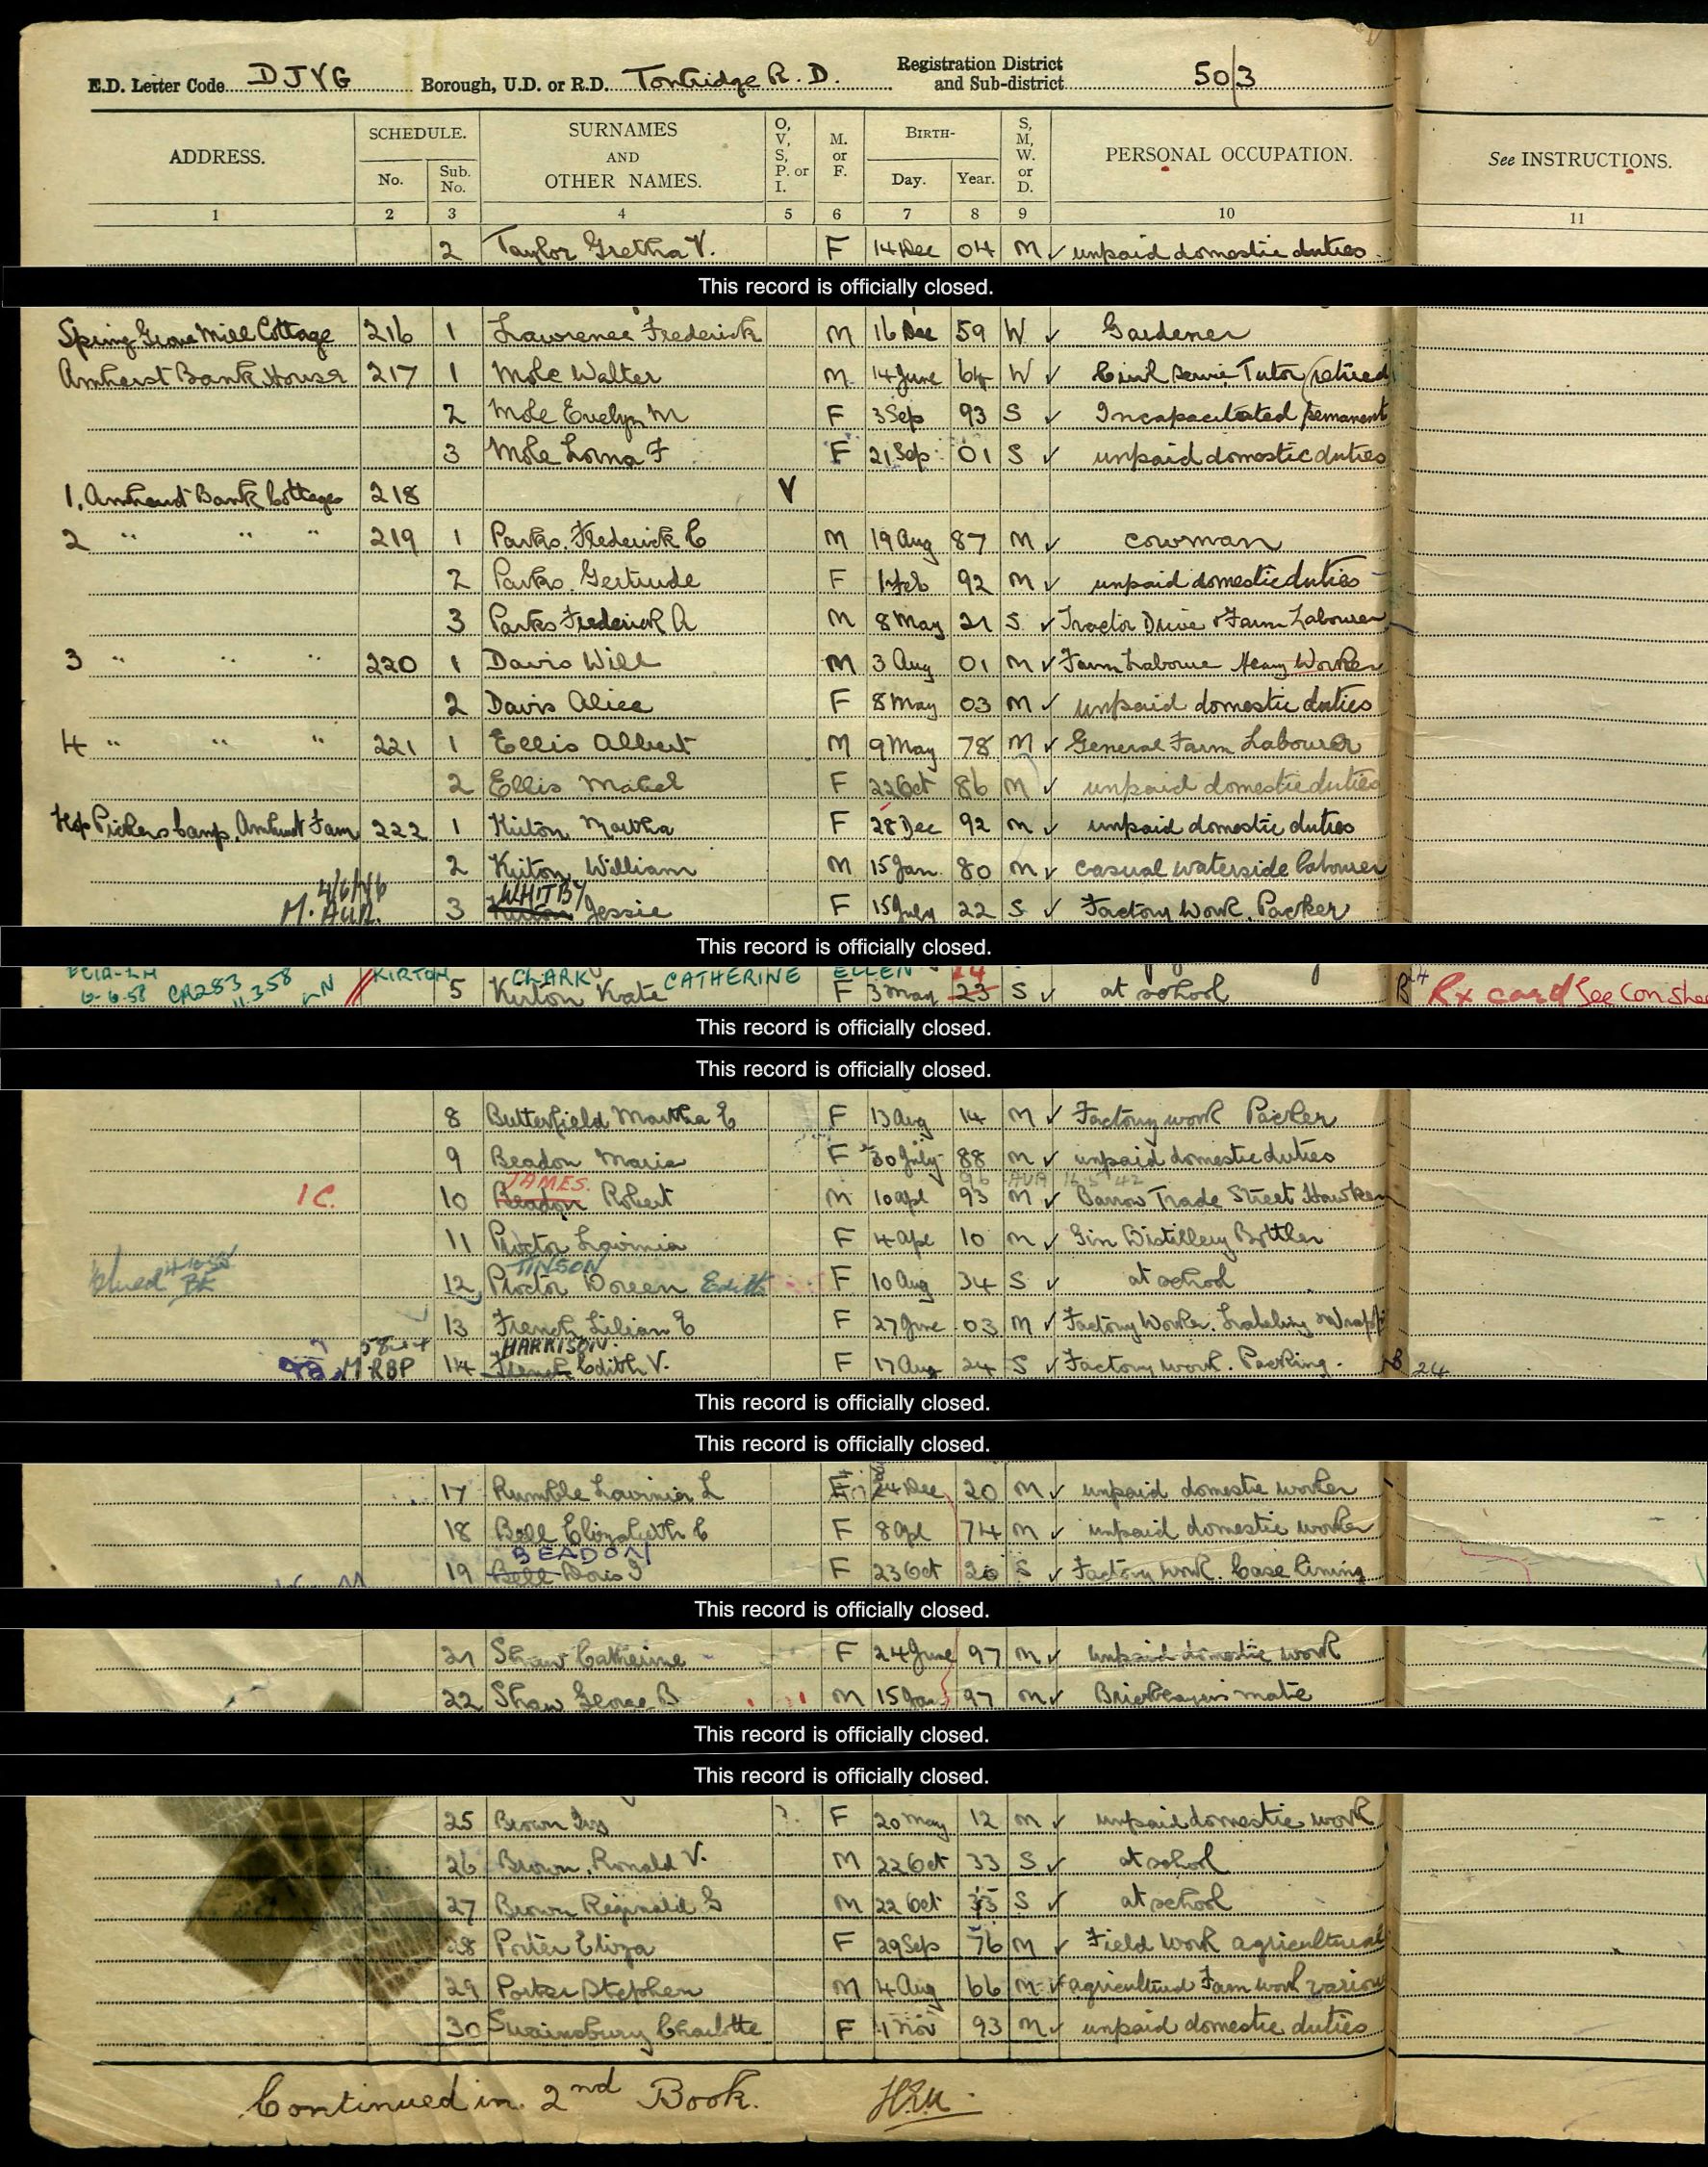 E.D. Letter Code DJYG Borough, U.D. or R.D. Tonbridge R.D. Registration District and Sub-district 50/3
ADDRESS. SCHEDULE. No. Sub. No. SURNAMES AND OTHER NAMES. O, V, S, P. or I. M. or F. BIRTH- Day. Year. S, M, W. or D. PERSONAL OCCUPATION. See INSTRUCTIONS.
1 2 3 4 5 6 7 8 9 10 11
2 Taylor Gretha V. F 14 Dec 04 M ✓ unpaid domestic duties.
This record is officially closed.
Spring Grove Mill Cottage 216 1 Lawrence Frederick M 16 Dec 59 W ✓ Gardener
Amherst Bank House 217 1 Mole Walter M 14 June 64 W ✓ Civil Servi Tutor (retired
2 Mole Evelyn M F 3 Sep 93 S ✓ Incapacitated permanent
3 Mole Lorna F F 21 Sep 01 S ✓ unpaid domestic duties
1, Amherst Bank Cottages 218 V
2 " " " 219 1 Parks. Frederick C M 19 Aug 87 M ✓ cowman
2 Parks. Gertrude F 1 Feb 92 M ✓ unpaid domestic duties
3 Parks Frederick A M 8 May 21 S ✓ Tractor Driver & Farm Labourer
3 " " " 220 1 Davis Will M 3 Aug 01 M ✓ Farm Labourer Heavy Worker
2 Davis Alice F 8 May 03 M ✓ unpaid domestic duties
4 " " " 221 1 Ellis Albert M 9 May 78 M ✓ General Farm Labourer
2 Ellis Mabel F 22 Oct 86 M ✓ unpaid domestic duties
Hop Pickers Camp, Amhurst Farm 222 1 Kirton Martha F 28 Dec 92 M ✓ unpaid domestic duties
2 Kirton William M 15 Jan. 80 M ✓ casual waterside labourer
4/6/46 WHITBY
M. AUR. 3 Kirton Jessie F 15 July 22 S ✓ Factory Work. Packer
This record is officially closed.
KIRTON CLARK CATHERINE ELLEN 24
6-6-58 CR283 11.3.58 LN 5 Kirton Kate F 3 May 23 S ✓ at school B 24 Rx card See Con Shee
This record is officially closed.
This record is officially closed.
8 Butterfield Martha E F 13 Aug 14 M ✓ Factory work Packer
9 Beadon Marie F 30 July 88 M ✓ unpaid domestic duties
JAMES. 96 AUA 16 5 42
1C. 10 Beadon Robert M 10 Apl 93 M ✓ Barrow Trade Street Hawker
11 Proctor Lavinia F 4 Apl 10 M ✓ Gin Distillery Bottler
TINSON
12 Proctor Doreen Edith F 10 Aug 34 S ✓ at school
13 French Lilian E F 27 June 03 M ✓ Factory Worker. Labeling & Wrapp
HARRISON.
M RBP 14 French Edith V. F 17 Aug 24 S ✓ Factory work. Packing. B 24
This record is officially closed.
This record is officially closed.
17 Rumble Lavinia L F 24 Dec 20 M ✓ unpaid domestic worker
18 Bell Elizabeth C F 8 Apl 74 M ✓ unpaid domestic worker
BEADON
19 Bell Doris F 23 Oct 20 S ✓ Factory work. Case Lining
This record is officially closed.
21 Shaw Catherine F 24 June 97 M ✓ unpaid domestic work
22 Shaw George B M 15 Jan 97 M ✓ Bricklayers mate
This record is officially closed.
This record is officially closed.
25 Brown Ivy ? F 20 May 12 M ✓ unpaid domestic work
26 Brown, Ronald V. M 22 Oct 33 S ✓ at school
27 Brown Reginald G M 22 Oct 35 S ✓ at school
28 Porter Eliza F 29 Sep 76 M ✓ Field work agricultural
29 Porter Stephen M 4 Aug 66 M ✓ agricultural Farm work various
30 Swainsbury Charlotte F 1 Nov 93 M ✓ unpaid domestic duties
Continued in 2nd Book.